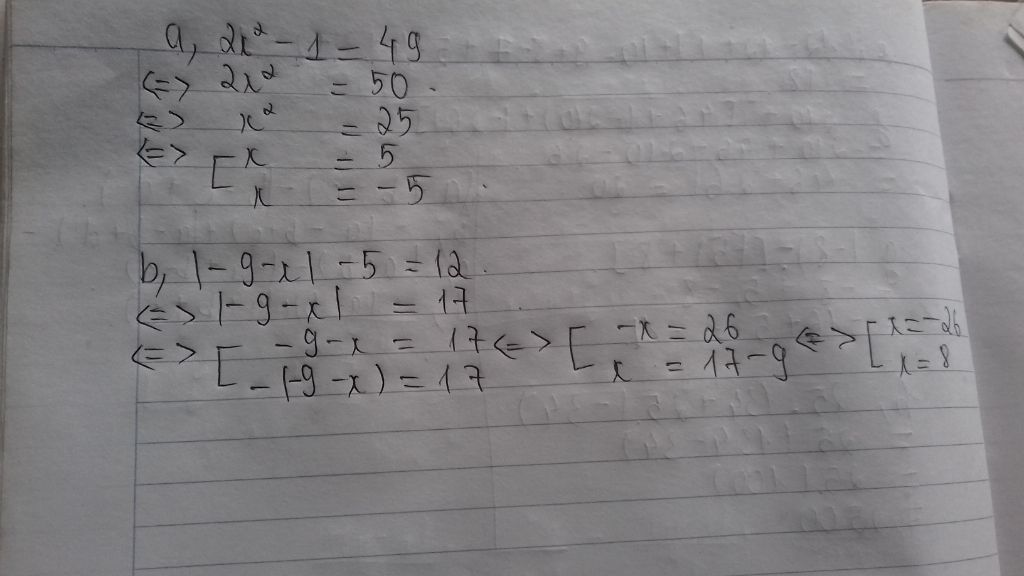 a, 2x² - 1 = 49
<=> 2x² = 50.
<=> x² = 25
<=> [ x = 5
x = -5
b, |-9-x| -5 = 12.
<=> |-9-x| = 17
<=> [ -9-x = 17 <=> [ -x = 26 <=> [ x = -26
-(-9-x) = 17 x = 17-9 x = 8